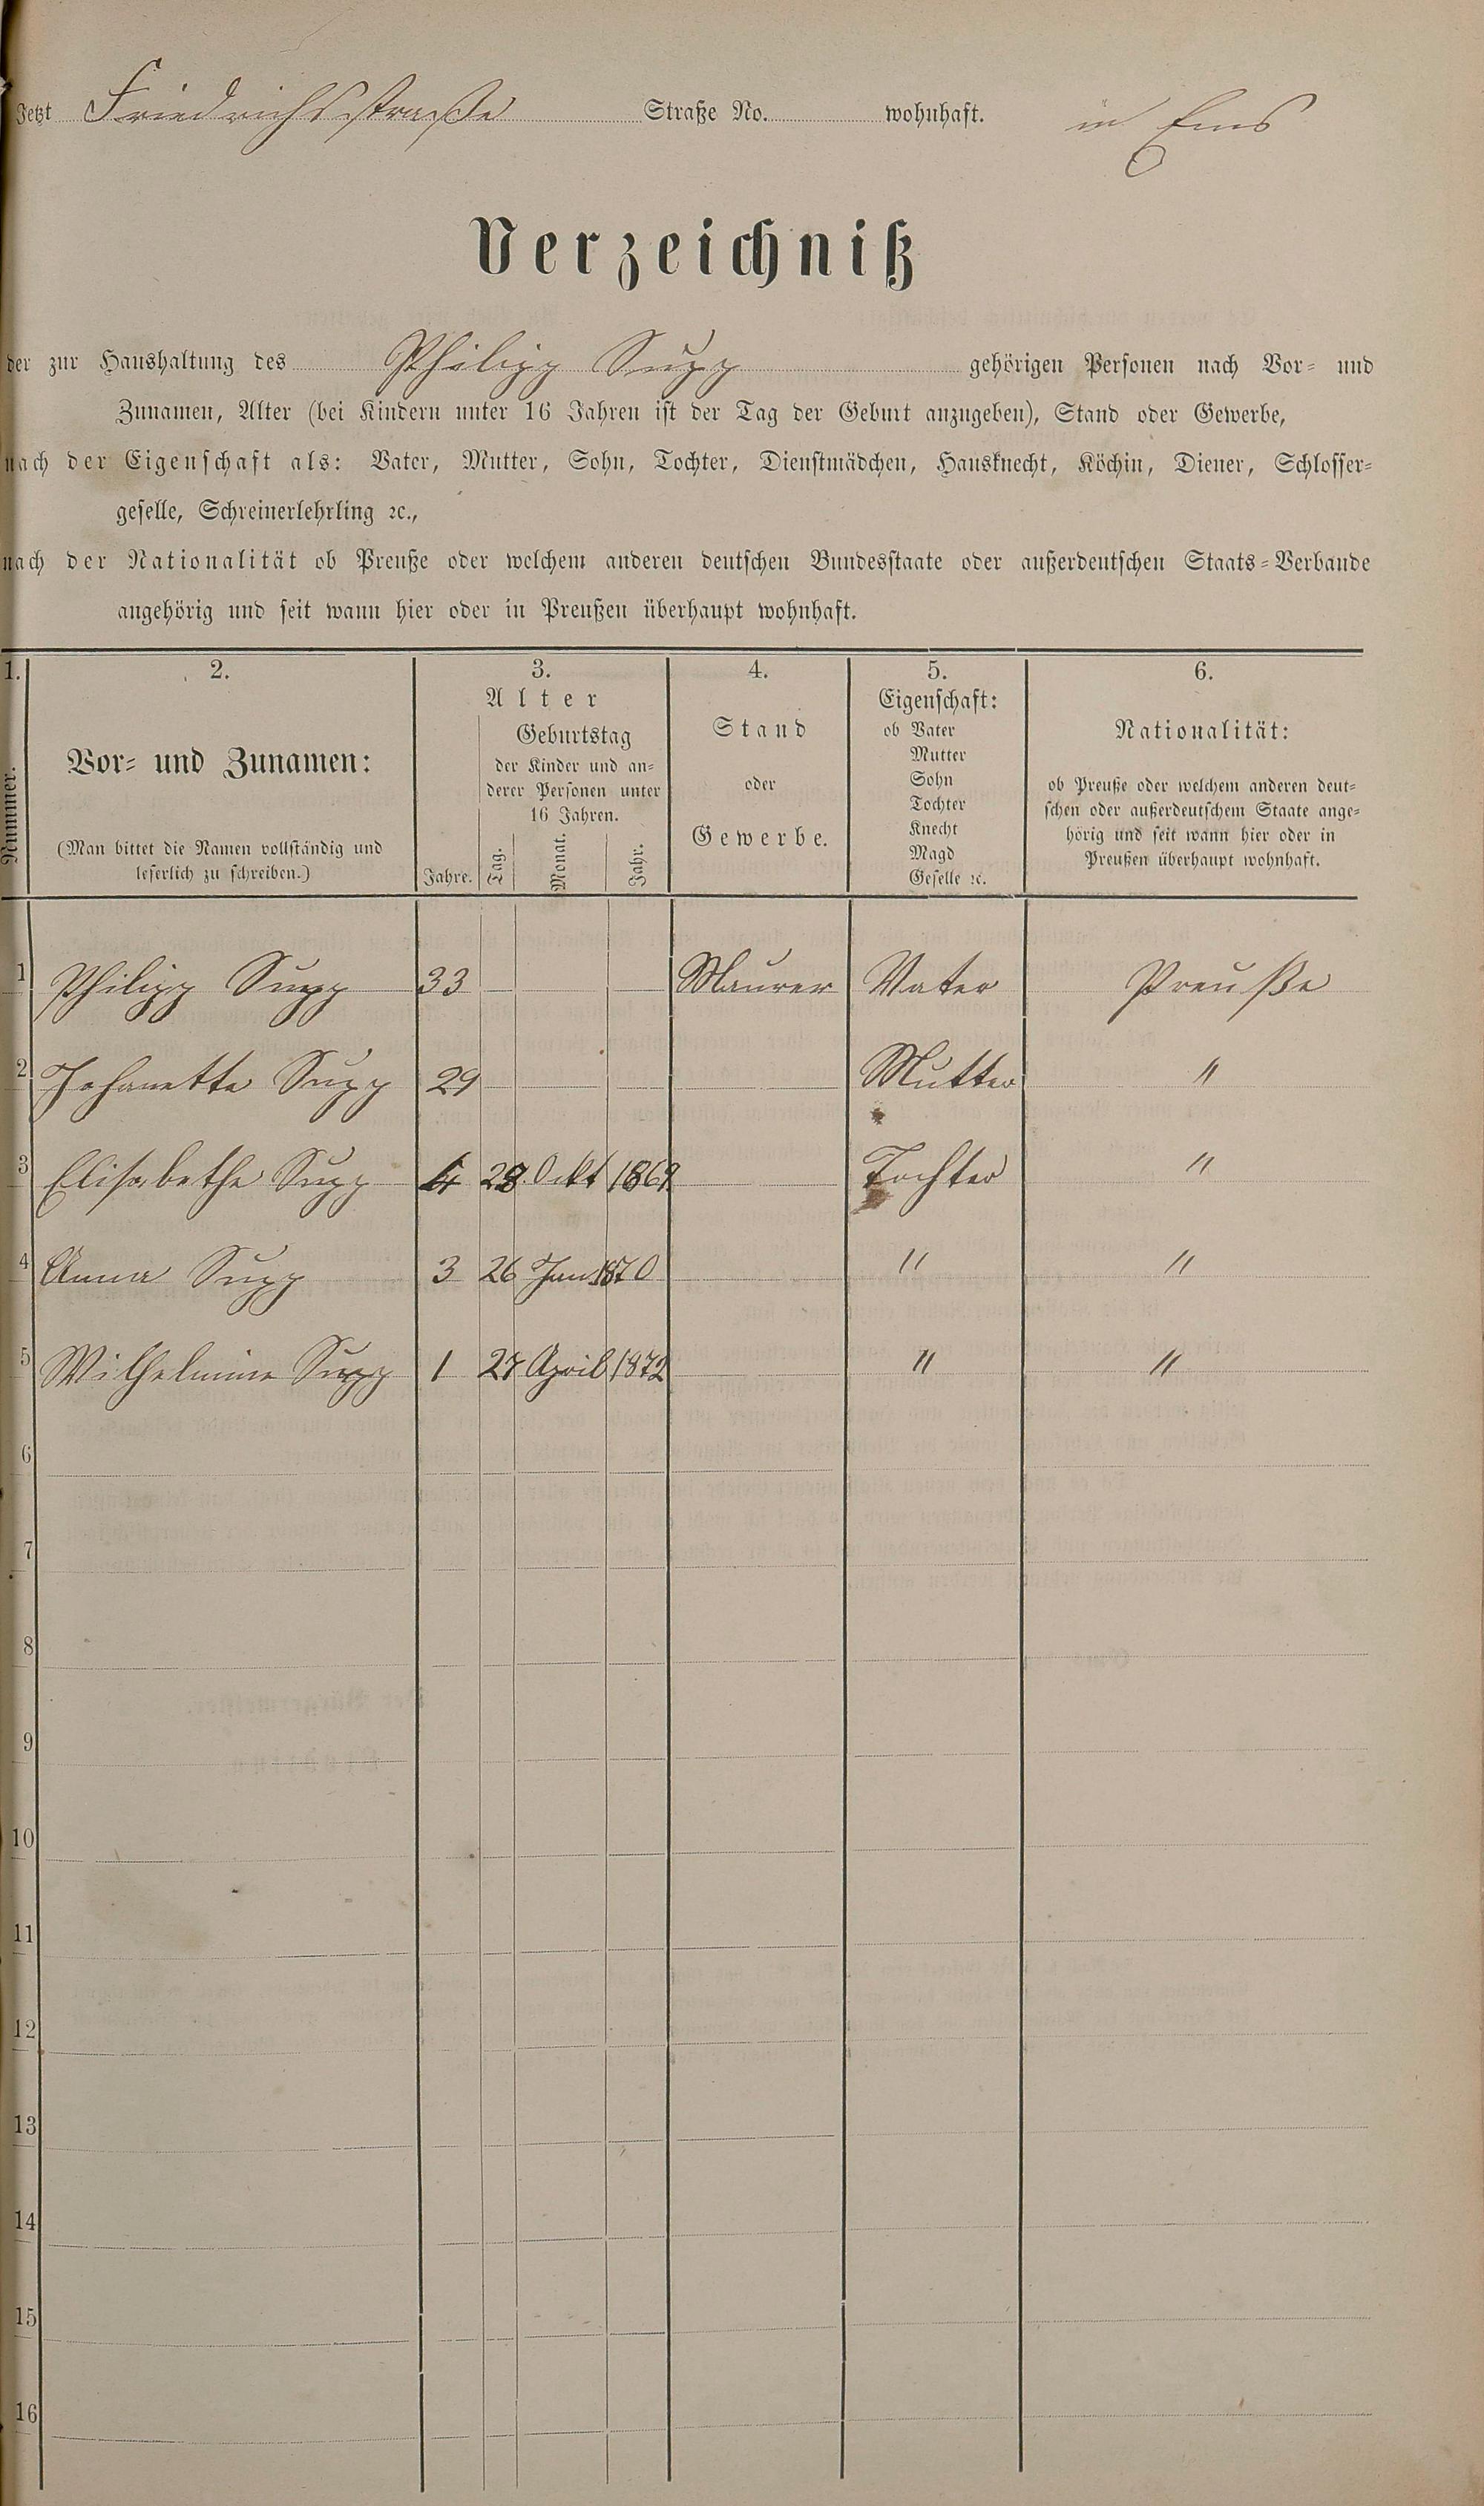 Jetzt Friedrichsstraße Straße No. wohnhaft. in Ems
Verzeichniß
der zur Haushaltung des Philipp Supp gehörigen Personen nach Vor- und
Zunamen, Alter (bei Kindern unter 16 Jahren ist der Tag der Geburt anzugeben), Stand oder Gewerbe,
nach der Eigenschaft als: Vater, Mutter, Sohn, Tochter, Dienstmädchen, Hausknecht, Köchin, Diener, Schlosser-
geselle, Schreinerlehrling ꝛc.,
nach der Nationalität ob Preuße oder welchem anderen deutschen Bundesstaate oder außerdeutschen Staats-Verbande
angehörig und seit wann hier oder in Preußen überhaupt wohnhaft.
1. 2. 3. 4. 5. 6.
Nummer.
Vor- und Zunamen:
(Man bittet die Namen vollständig und
leserlich zu schreiben.)
Alter
Jahre.
Geburtstag
der Kinder und an-
derer Personen unter
16 Jahren.
Tag. Monat. Jahr.
Stand
oder
Gewerbe.
Eigenschaft:
ob Vater
Mutter
Sohn
Tochter
Knecht
Magd
Geselle ꝛc.
Nationalität:
ob Preuße oder welchem anderen deut-
schen oder außerdeutschem Staate ange-
hörig und seit wann hier oder in
Preußen überhaupt wohnhaft.
1 Philipp Supp 33 Maurer Vater Preuße
2 Johanette Supp 29 Mutter "
3 Elisabethe Supp 4 28. Okt 1869 Tochter "
4 Anna Supp 3 26 Jan 1870 " "
5 Wilhelmine Supp 1 27 April 1872 " "
6
7
8
9
10
11
12
13
14
15
16